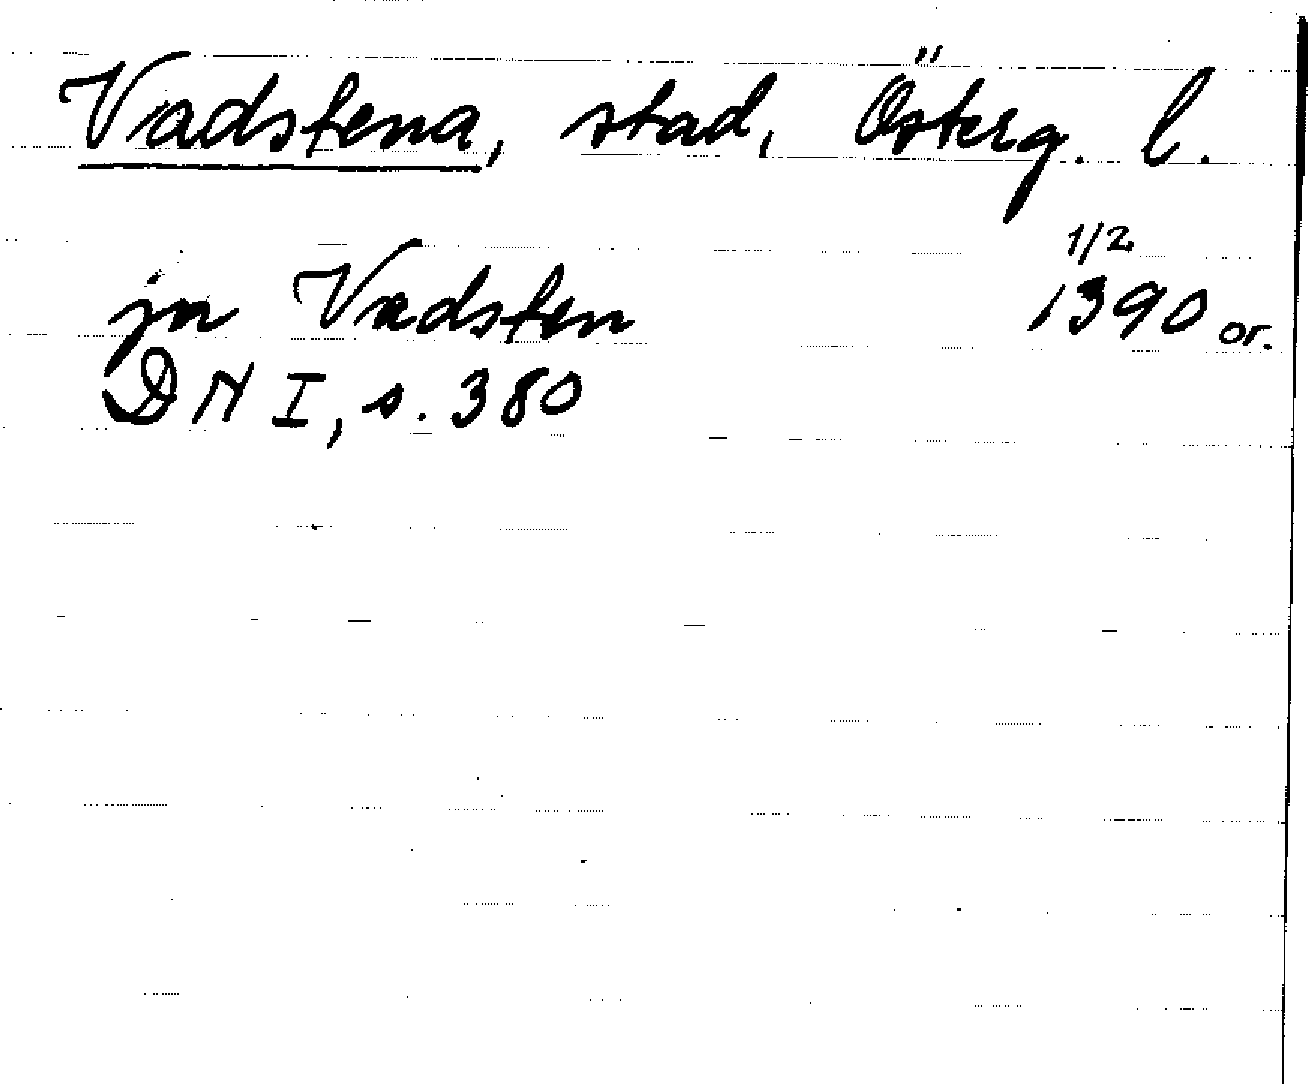 Vadstena, stad, Österg. l.
jn Vadsten 1/2 1390 or.
DN I, s. 380